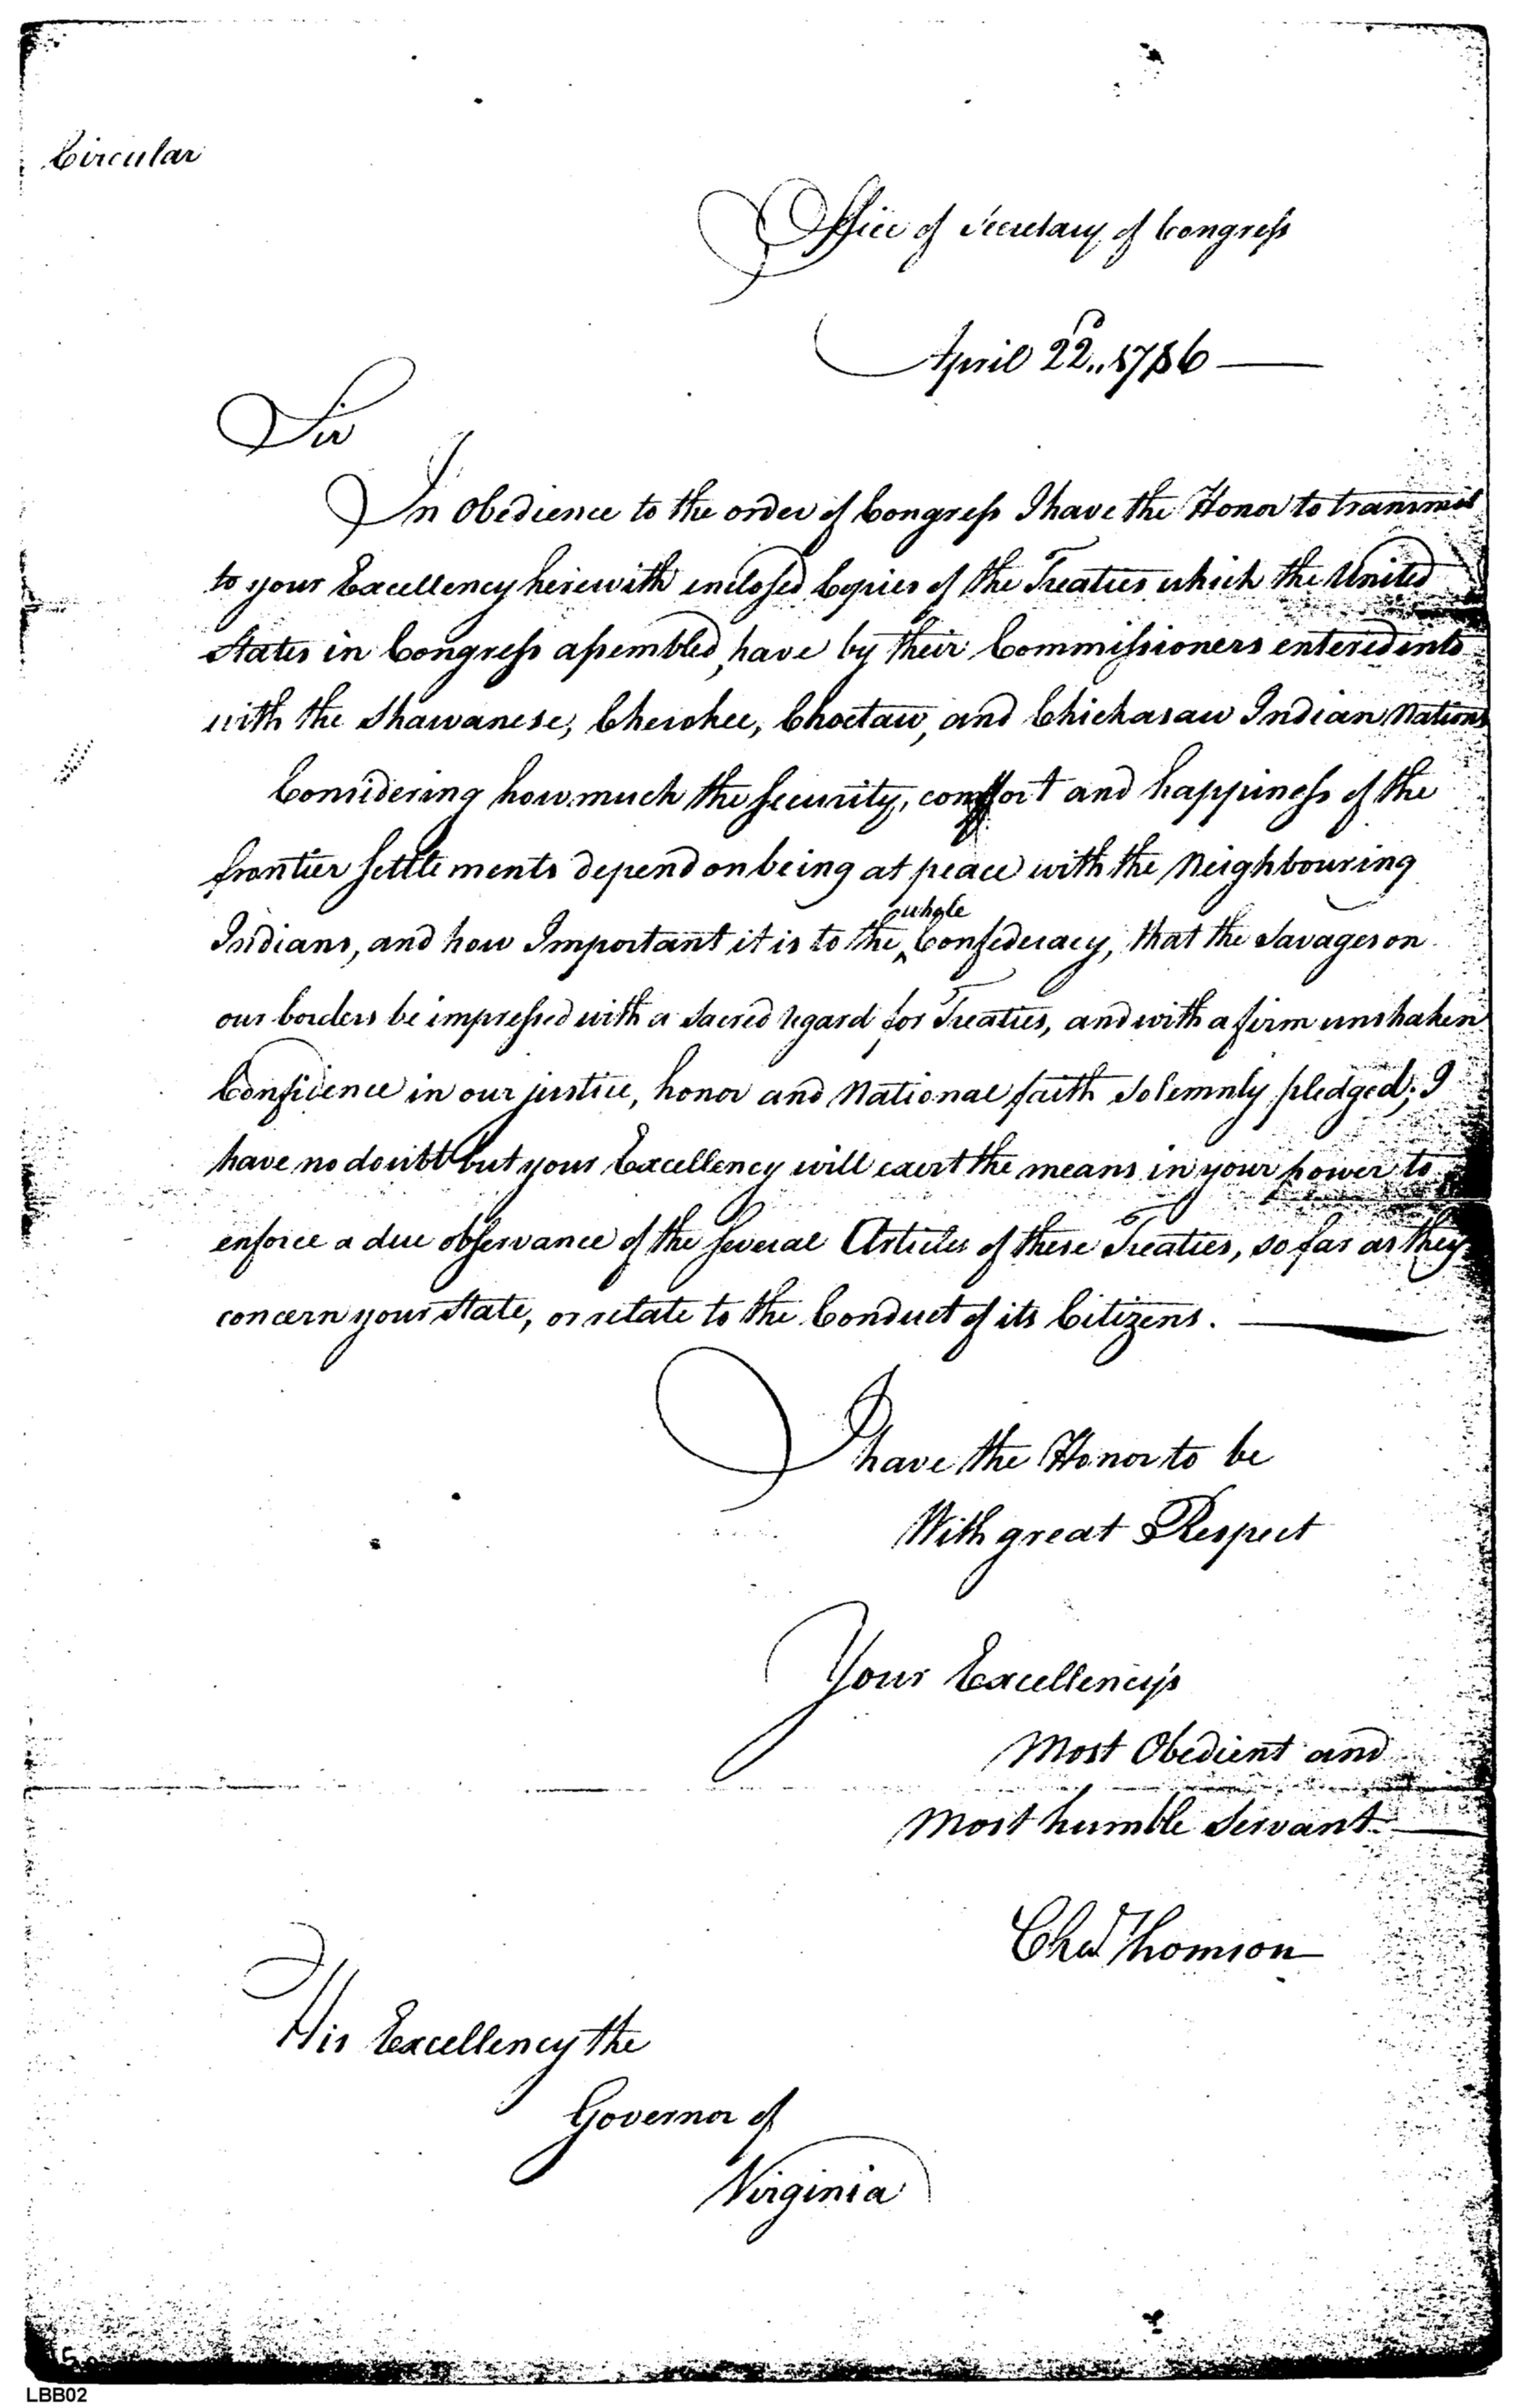 Circular
Office of Secretary of Congress
April 22d.. 1786
Sir
In Obedience to the order of Congress I have the Honor to transmit
to your Excellency herewith enclosed Copies of the Treaties which the United
States in Congress assembled, have by their Commissioners entered into
with the Shawanese, Cherokee, Choctaw, and Chickasaw Indian Nations
Considering how much the Security, comfort and happiness of the
frontier Settlements depend on being at peace with the Neighbouring
Indians, and how Important it is to the whole Confederacy, that the Savages on
our borders be impressed with a Sacred regard for Treaties, and with a firm unshaken
Confidence in our justice, honor and National faith Solemnly pledged; I
have no doubt but your Excellency will exert the means in your power to
enforce a due observance of the Several Articles of these Treaties, so far as they
concern your State, or relate to the Conduct of its Citizens.
I have the Honor to be
With great Respect
Your Excellency's
Most Obedient and
Most humble Servant
Chas Thomson
His Excellency the
Governor of
Virginia
LBB02